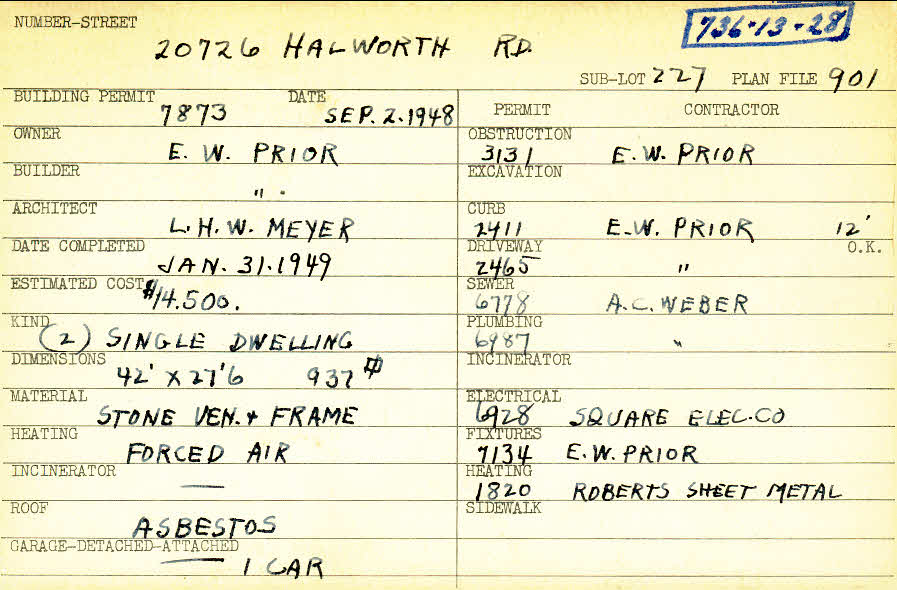 NUMBER-STREET
20726 HALWORTH RD.
736-13-28
SUB-LOT 227 PLAN FILE 901
BUILDING PERMIT DATE
7873 SEP. 2.1948
OWNER
E. W. PRIOR
BUILDER
" "
ARCHITECT
L.H.W. MEYER
DATE COMPLETED
JAN. 31.1949
ESTIMATED COST
$14.500.
KIND
(2) SINGLE DWELLING
DIMENSIONS
42' X 27'6 937 #
MATERIAL
STONE VEN. & FRAME
HEATING
FORCED AIR
INCINERATOR
—
ROOF
ASBESTOS
GARAGE-DETACHED-ATTACHED
— 1 CAR
PERMIT CONTRACTOR
OBSTRUCTION
3131 E.W. PRIOR
EXCAVATION
CURB
2411 E.W. PRIOR 12'
DRIVEWAY O.K.
2465 "
SEWER
6778 A.C. WEBER
PLUMBING
6987 "
INCINERATOR
ELECTRICAL
6928 SQUARE ELEC.CO
FIXTURES
7134 E.W. PRIOR
HEATING
1820 ROBERTS SHEET METAL
SIDEWALK